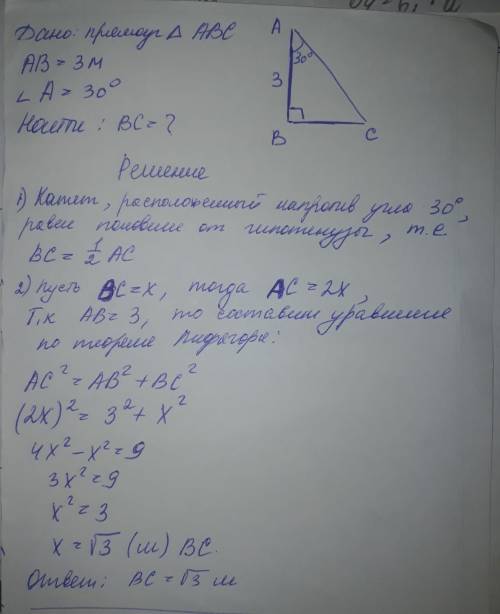 Дано: прямоуг Δ ABC
AB = 3 м
∠ A = 30°
Найти: BC = ?
A
30°
3
B
C
Решение
1) Катет, расположенный напротив угла 30°,
равен половине от гипотенузы, т.е.
BC = 1/2 AC
2) Пусть BC = x, тогда AC = 2x,
Т.к AB = 3, то составим уравнение
по теореме Пифагора:
AC² = AB² + BC²
(2x)² = 3² + x²
4x² - x² = 9
3x² = 9
x² = 3
x = √3 (м) BC.
Ответ: BC = √3 м